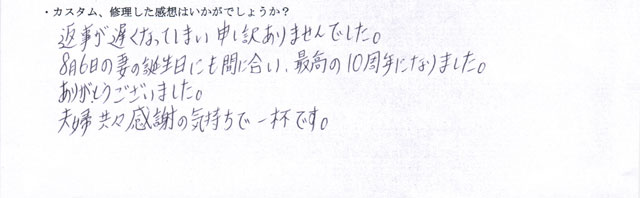 ・カスタム、修理した感想はいかがでしょうか？
返事が遅くなってしまい申し訳ありませんでした。
8月6日の妻の誕生日にも間に合い、最高の10周年になりました。
ありがとうございました。
夫婦共々感謝の気持ちで一杯です。